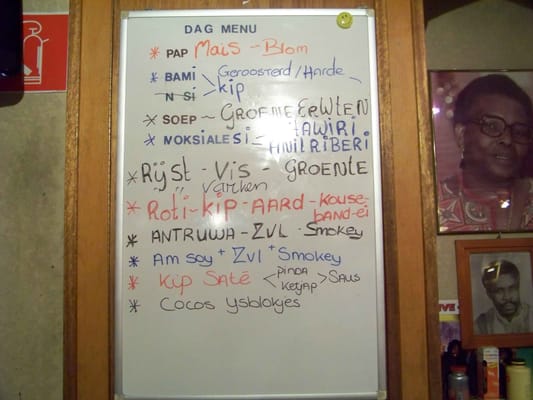 DAG MENU
* PAP Mais - Blom
* BAMI > Geroosterd/Harde
N Si kip
* SOEP ~ GROENE ERWTEN
* MOKSIALESI = TAWIRI
ANITRIBERI
* Rÿst - Vis - GROENTE
~ " " Varken
* Roti - kip - AARD - KOUSE-
BAND-ei
* ANTRUWA - ZVL - Smokey
* Am soy + Zvl + Smokey
* Kip Saté < PINDA > SAUS
Ketjap
* Cocos Ysblokjes